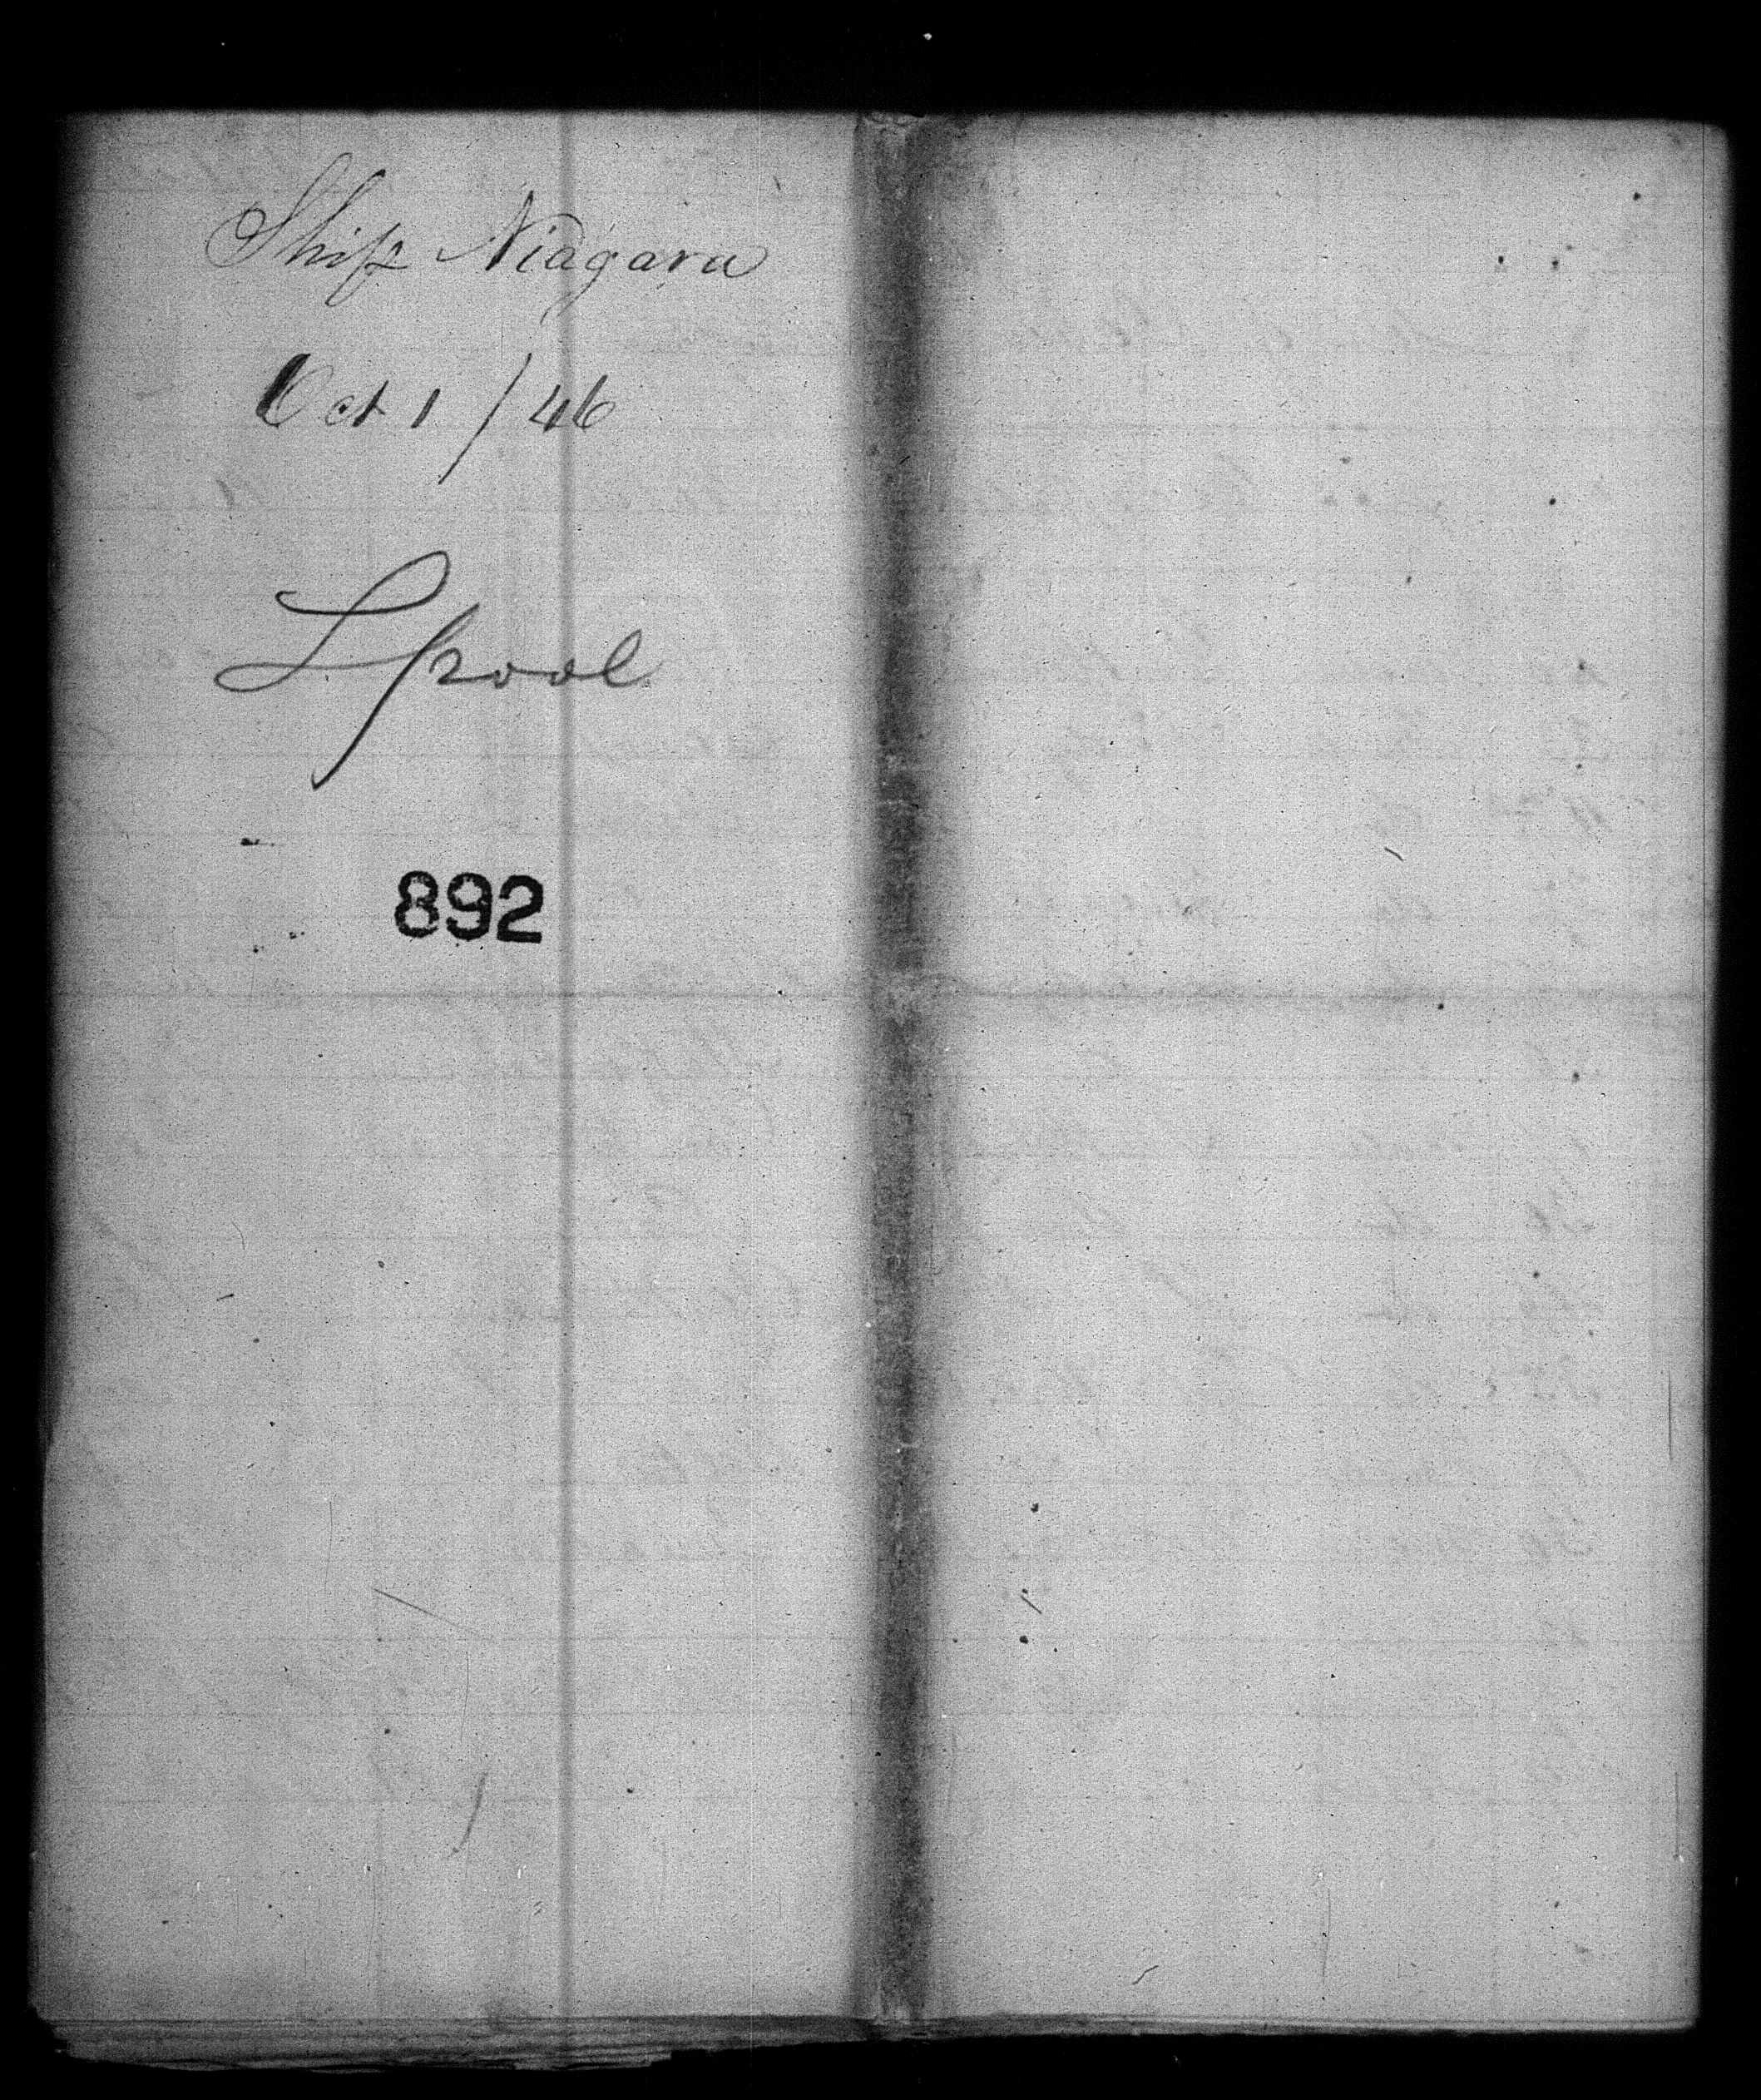 Ship Niagara
Oct 1 / 46
Lpool
892